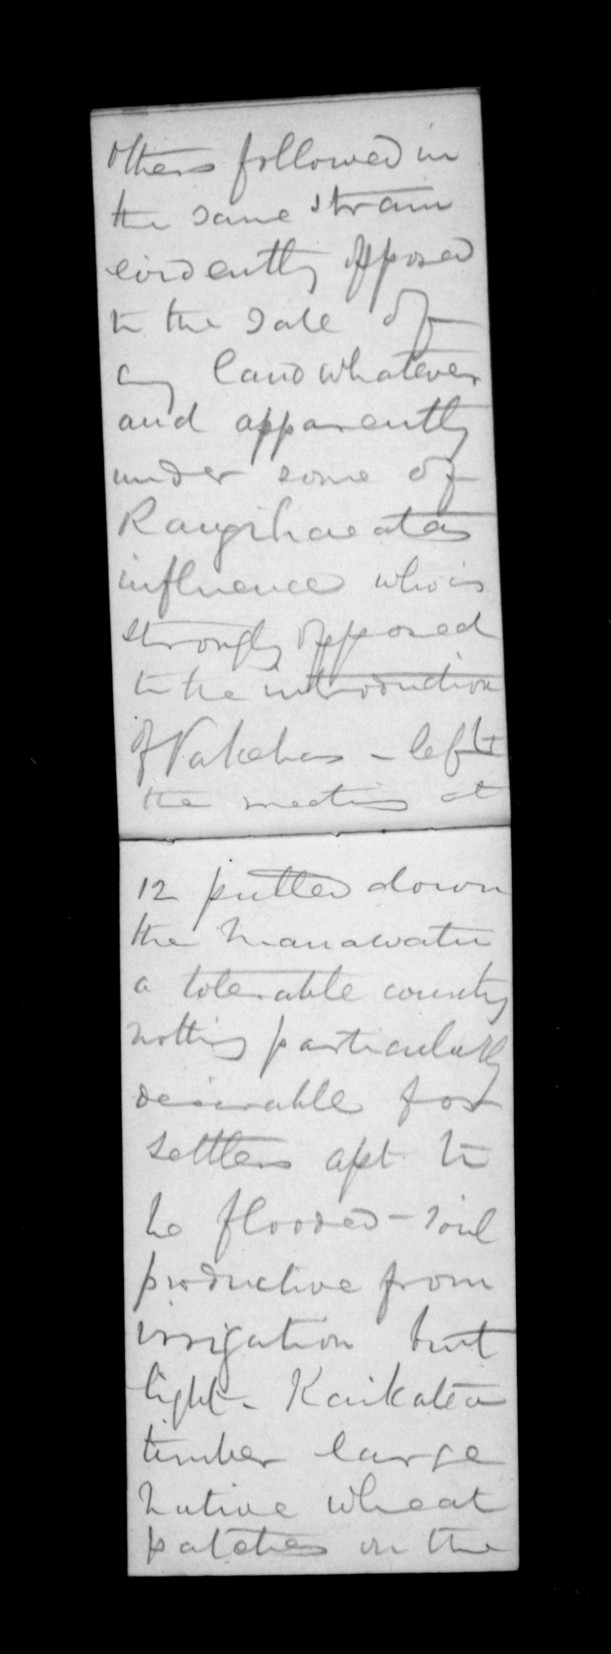 others followed in
the same strain
evidently opposed
to the sale of
any land whatever
and apparently
under some of
Rangihaeatas
influence who is
strongly opposed
to the introduction
of Pakehas - left
the meeting at
12 pulled down
the Manawatu
a tolerable country
nothing particularly
desirable for
settlers apt to
be flooded - soil
productive from
irrigation but
light - Kaikatea
timber large
native wheat
patches on the